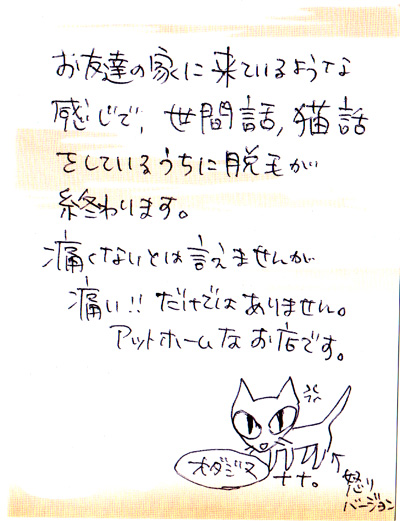 お友達の家に来ているような
感じで、世間話,猫話
をしているうちに脱毛が
終わります。
痛くないとは言えませんが
痛い!!だけではありません。
アットホームなお店です。
オダジマ
ナナ。
怒り
バージョン